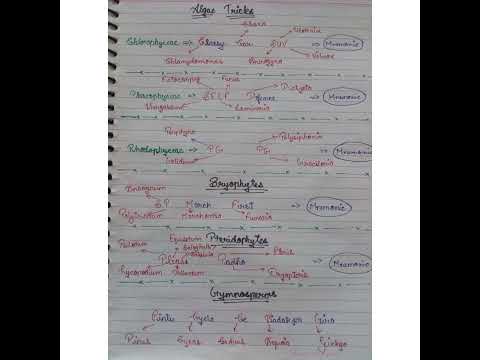 Algae Tricks
Chara Ulothrix
Chlorophyceae => Classy Car DUV => Mnemonic
Chlamydomonas Spirogyra Volvox
Ectocarpus Fucus Dictyota
Phaeophyceae => SELF Defence => Mnemonic
Sargassum Laminaria
Porphyra Polysiphonia
Rhodophyceae => PG PG => Mnemonic
Gelidium Gracilaria
Bryophytes
Sphagnum SP March First => Mnemonic
Polytrichum Marchantia Funaria
Pteridophytes
Psilotum Equisetum Pteris
Padho => Mnemonic
Lycopodium Dryopteris
Gymnosperms
Pintu Cycle Se Giro
Pinus Cycas Cedrus Ginkgo